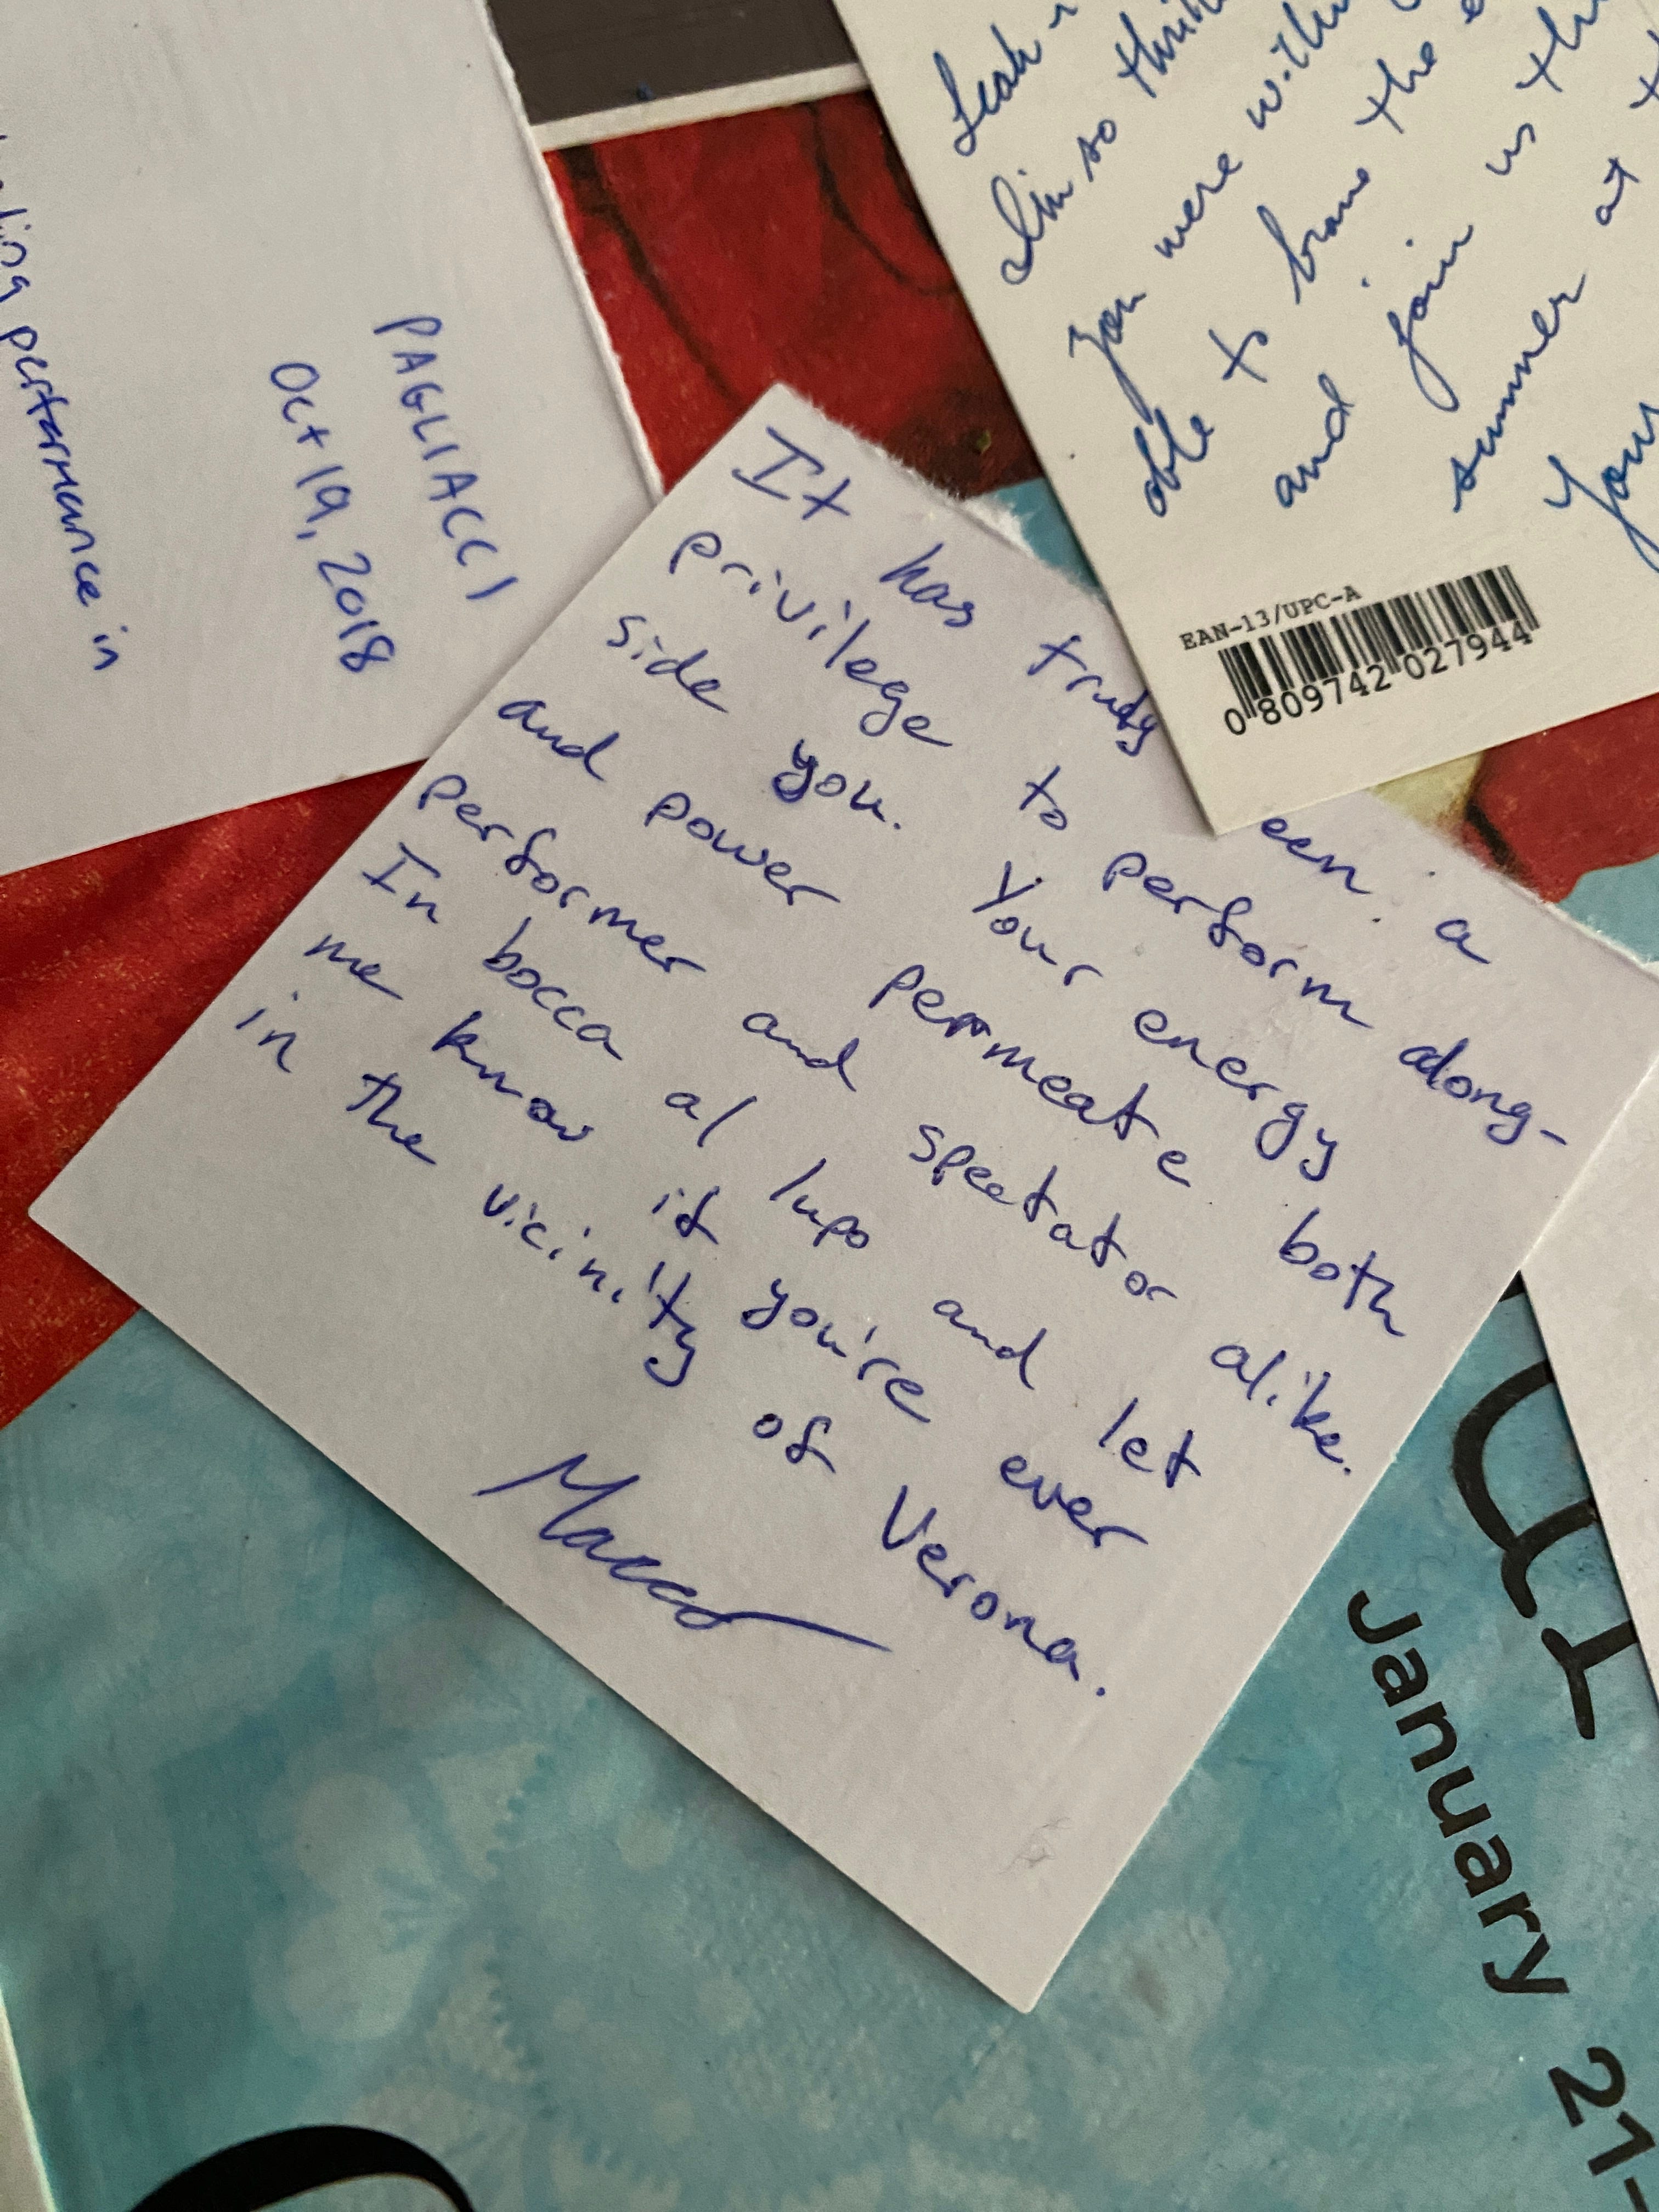 ing performance in
PAGLIACCI
Oct 19, 2018
Leah -
I'm so
you were
able to brave the
and join us
summer at
EAN-13/UPC-A
0 809742 027944
It has truly een a
privilege to perform along-
side you. Your energy
and power permeate both
performer and spectator alike.
In bocca al lupo and let
me know if you're ever
in the vicinity of Verona.
January 21-